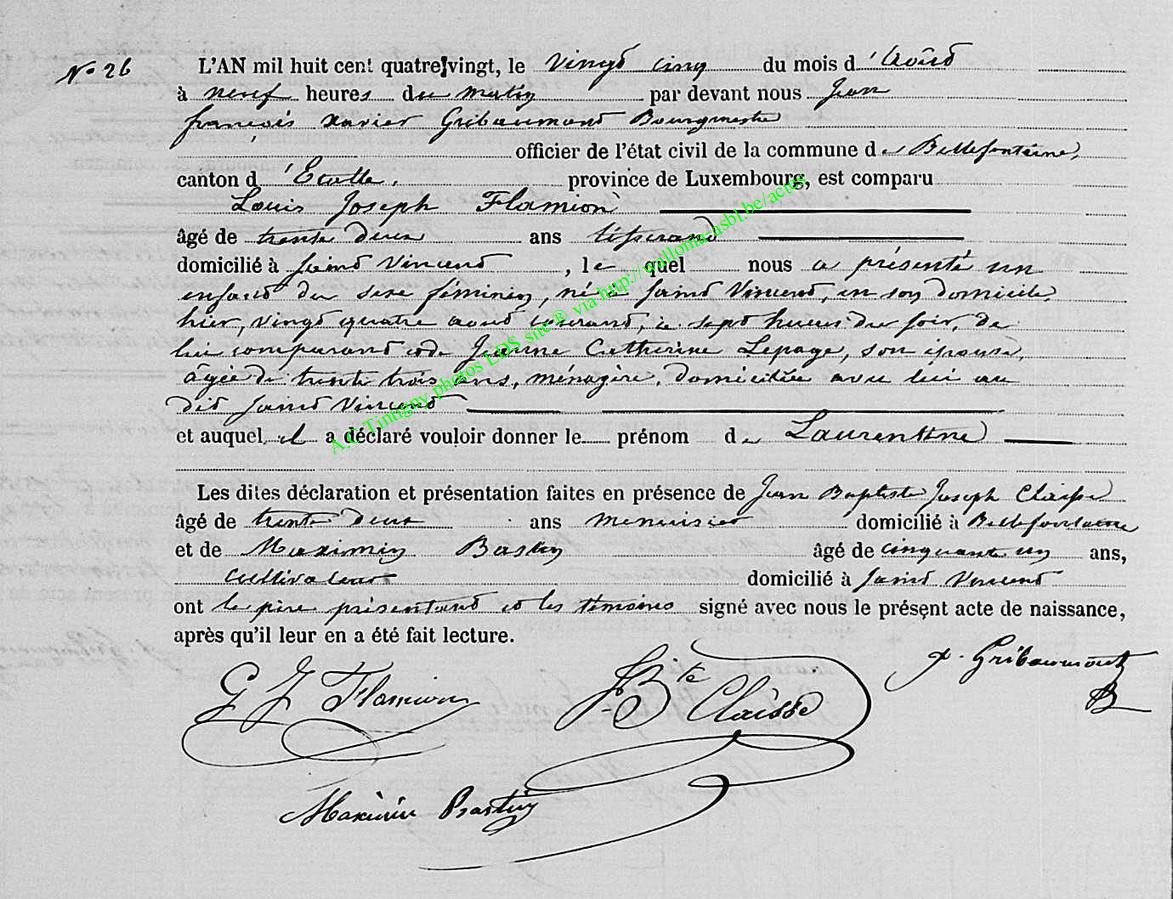 N° 26
L'AN mil huit cent quatre-vingt, le vingt cinq du mois d'Août
à neuf heures du matin par devant nous Jean
françois Xavier Gribaumont Bourgmestre
officier de l'état civil de la commune de Bellefontaine,
canton d'Etalle, province de Luxembourg, est comparu
Louis Joseph Flamion
âgé de trente deux ans tisserand
domicilié à Saint Vincent, le quel nous a présenté un
enfant du sexe féminin, né à Saint Vincent, en son domicile,
hier, vingt quatre août courant, à sept heures du soir, de
lui comparant et de Jeanne Catherine Lepage, son épouse,
âgée de trente trois ans, ménagère, domiciliée avec lui au
dit Saint Vincent
et auquel il a déclaré vouloir donner le prénom de Laurentine
Les dites déclaration et présentation faites en présence de Jean Baptiste Joseph Claisse
âgé de trente deux ans menuisier domicilié à Bellefontaine
et de Maximin Bastin âgé de cinquante un ans,
cultivateur domicilié à Saint Vincent
ont le père présentant et les témoins signé avec nous le présent acte de naissance,
après qu'il leur en a été fait lecture.
G J Flamion J-Bte Claisse x. Gribaumont
B
Maximin Bastin
A.C. Tintigny photos LDS site ® via http://wallonia-asbl.be/actes